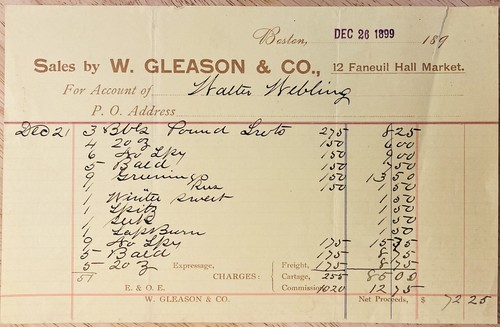 Boston, DEC 26 1899 189
Sales by W. GLEASON & CO., 12 Faneuil Hall Market.
For Account of Walter Webling
P. O. Address
Dec 21 3 Bbls Pound 275 8 25
4 20 z 150 6 00
6 No Spy 150 9 00
5 Bald 150 7 50
9 Greenings 150 13 50
1 Rus 150 1 50
1 Winter Sweet 1 50
1 Spitz 1 50
1 1 50
1 1 50
9 No Spy 175 15 75
5 Bald 175 8 75
5 20 z Expressage, Freight, 175 8 75
51 CHARGES: Cartage, 255 85 00
E. & O. E. Commission 1020 12 75
W. GLEASON & CO. Net Proceeds, $ 72 25